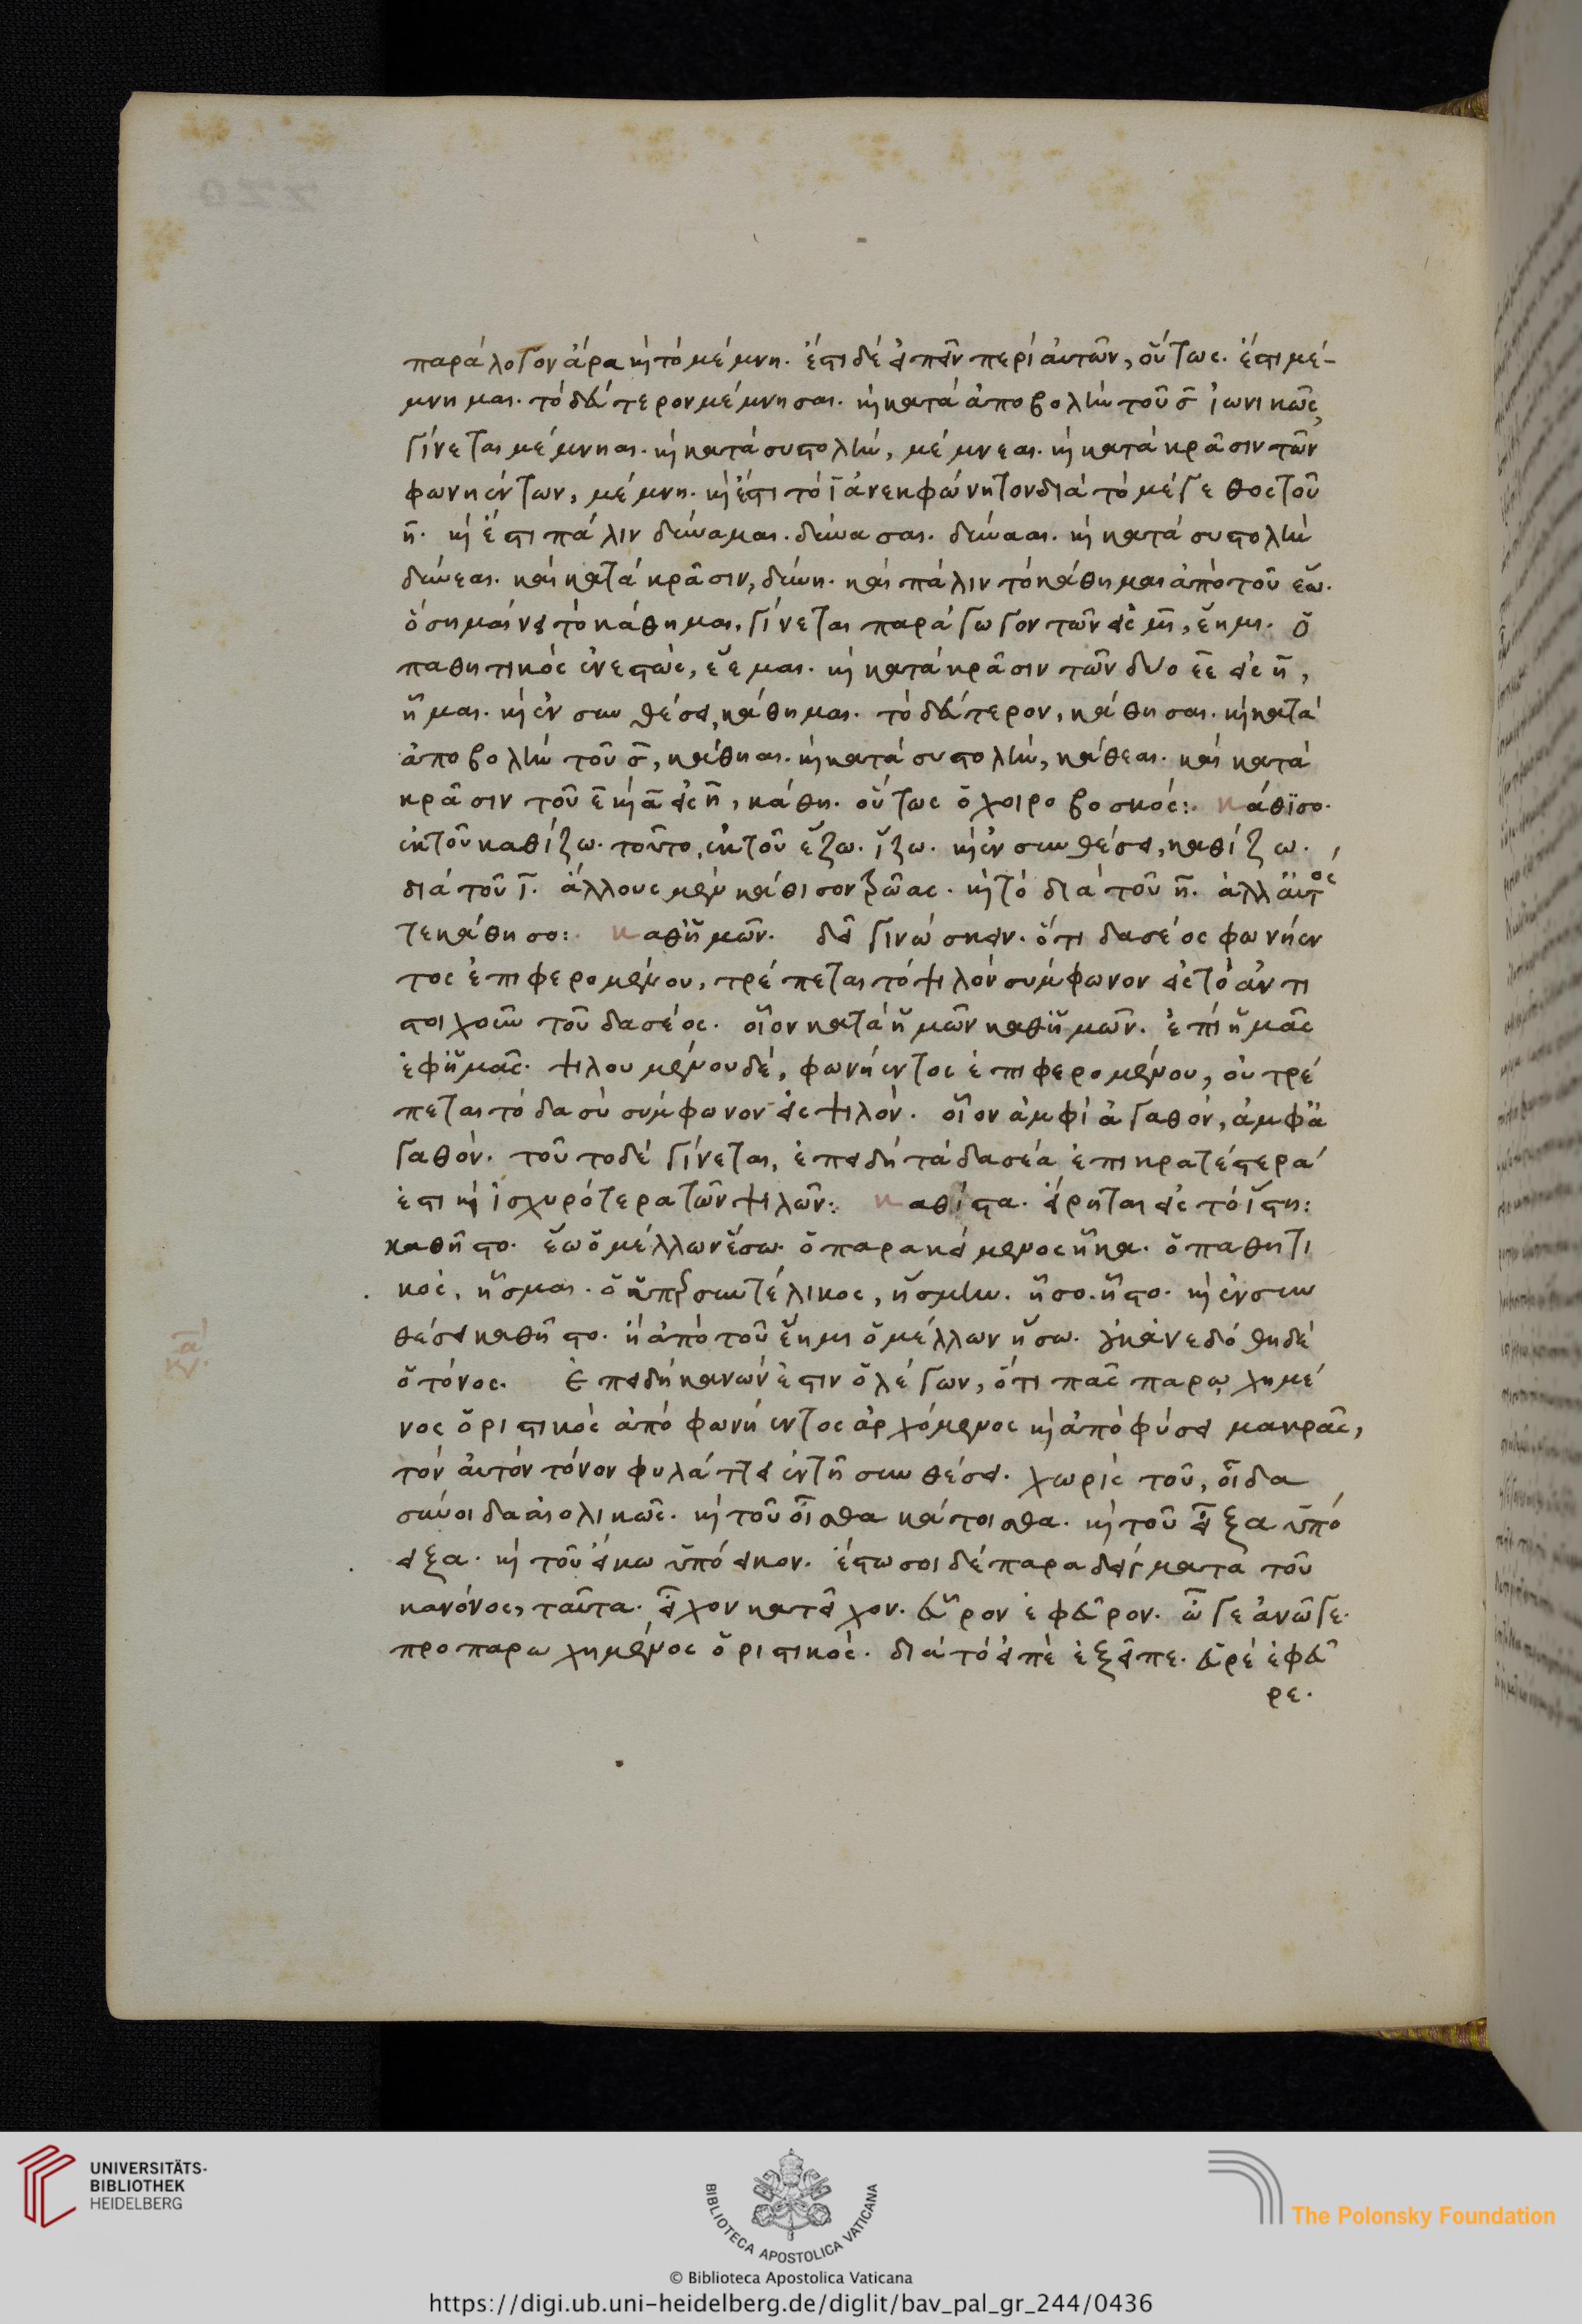 παράλογον ἄρα καὶ τὸ μέμνη. ἔστι δὲ εἰπεῖν περὶ αὐτῶν, οὕτως. ἔστι μέ-
μνημαι. τὸ δεύτερον μέμνησαι. καὶ κατὰ ἀποβολὴν τοῦ σ̄ ἰωνικῶς,
γίνεται μέμνηαι. καὶ κατὰ συστολὴν, μέμνεαι. καὶ κατὰ κρᾶσιν τῶν
φωνηέντων, μέμνη. καὶ ἔστι τὸ ῑ ἀνεκφώνητον διὰ τὸ μέγεθος τοῦ
η̄. καὶ ἔστι πάλιν δύναμαι. δύνασαι. δύνααι. καὶ κατὰ συστολὴν
δύνεαι. καὶ κατὰ κρᾶσιν, δύνη. καὶ πάλιν τὸ κάθημαι ἀπὸ τοῦ ἕω.
ὃ σημαίνει τὸ κάθημαι, γίνεται παράγωγον τῶν εἰς μῑ, ἕημι. ὁ
παθητικὸς ἐνεστὼς, ἕεμαι. καὶ κατὰ κρᾶσιν τῶν δύο ε̄ε̄ εἰς η̄,
ἧμαι. καὶ ἐν συνθέσει, κάθημαι. τὸ δεύτερον, κάθησαι. καὶ κατὰ
ἀποβολὴν τοῦ σ̄, κάθηαι. καὶ κατὰ συστολὴν, κάθεαι. καὶ κατὰ
κρᾶσιν τοῦ ε̄ καὶ ᾱ εἰς η̄, κάθη. οὕτως ὁ χοιροβοσκός: κάθϊσο.
ἐκ τοῦ καθίζω. τοῦτο, ἐκ τοῦ ἕζω. ἵζω. καὶ ἐν συνθέσει, καθίζω.
διὰ τοῦ ῑ. ἄλλους μὲν κάθισον τρῶας. καὶ τὸ διὰ τοῦ η̄. ἀλλ' αὐτός
τε κάθησο: καθ' ἡμῶν. δεῖ γινώσκειν. ὅτι δασέος φωνήεν
τος ἐπιφερομένου, τρέπεται τὸ ψιλὸν σύμφωνον εἰς τὸ ἀντι
στοιχοῦν τοῦ δασέος. οἷον κατὰ ἡμῶν καθ' ἡμῶν. ἐπὶ ἡμᾶς
ἐφ' ἡμᾶς. ψιλουμένου δὲ, φωνήεντος ἐπιφερομένου, οὐ τρέ
πεται τὸ δασὺ σύμφωνον εἰς ψιλόν. οἷον ἀμφὶ ἀγαθὸν, ἀμφ' ἀ
γαθόν. τοῦτο δὲ γίνεται, ἐπειδὴ τὰ δασέα ἐπικρατέστερά
ἐστι καὶ ἰσχυρότερα τῶν ψιλῶν: καθίστα. εἴρηται εἰς τὸ ἵστη:
καθῆστο. ἕω ὁ μέλλων ἕσω. ὁ παρακείμενος ἧκα. ὁ παθητι
κὸς, ἧσμαι. ὁ ὑπερσυντέλικος, ἥσμην. ἧσο. ἧστο. καὶ ἐν συν
θέσει καθῆστο. ἢ ἀπὸ τοῦ ἕημι ὁ μέλλων ἥσω. οὐκ ἀνεδόθη δὲ
ὁ τόνος. Ἐπειδὴ κανών ἐστιν ὁ λέγων, ὅτι πᾶς παρωχημέ
νος ὁριστικὸς ἀπὸ φωνήεντος ἀρχόμενος καὶ ἀπὸ φύσει μακρᾶς,
τὸν αὐτὸν τόνον φυλάττει ἐν τῇ συνθέσει. χωρὶς τοῦ, οἶδα
σύνοιδα αἰολικῶς. καὶ τοῦ οἶσθα κάτοισθα. καὶ τοῦ εἶξα ὑπό
ειξα. καὶ τοῦ εἶκω ὑπόεικον. ἔστωσοι δὲ παραδείγματα τοῦ
κανόνος, ταῦτα. εἶχον κατεῖχον. εὗρον ἐφεῦρον. ὦγε ἀνῶγε.
προπαρωχημένος ὁριστικός. διὰ τὸ εἰπὲ ἔξειπε. εὑρέ ἐφεῦ
ρε.
κα
UNIVERSITÄTS-
BIBLIOTHEK
HEIDELBERG
BIBLIOTECA APOSTOLICA VATICANA
The Polonsky Foundation
© Biblioteca Apostolica Vaticana
https://digi.ub.uni-heidelberg.de/diglit/bav_pal_gr_244/0436